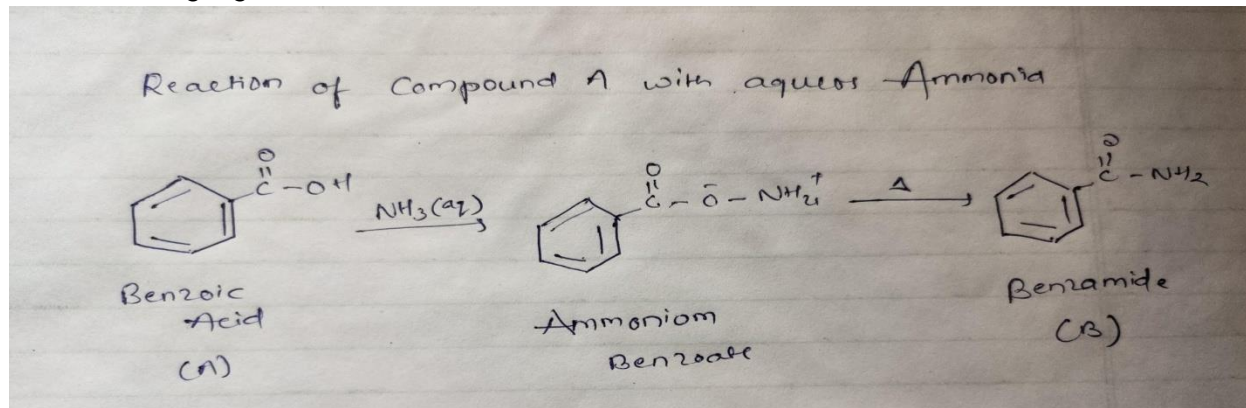 Reaction of Compound A with aqueos Ammonia
O
C-OH
NH3(aq)
O
C-O⁻-NH4⁺
Δ
O
C-NH2
Benzoic
Acid
(A)
Ammoniom
Benzoate
Benzamide
(B)